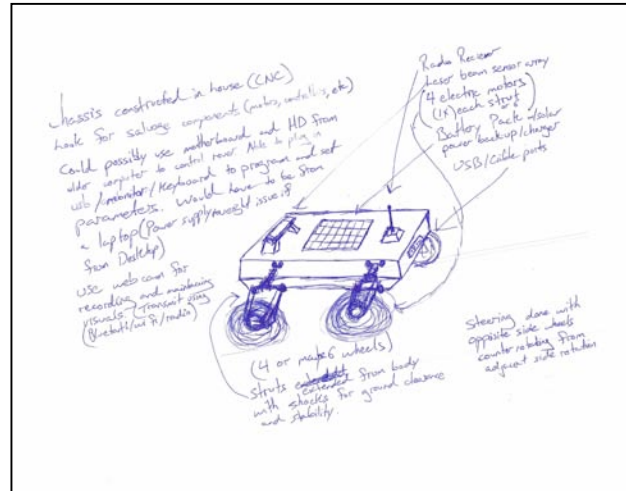 Chassis constructed in house (CNC)
Look for salvage components (motors, controllers, etc)
Could possibly use motherboard and HD from
older computer to control rover. Able to plug in
usb/monitor/keyboard to program and set
parameters. Would have to be from
a laptop (Power supply/weight issue if
from Desktop)
use webcam for
recording and
visuals (Transmit using
(Bluetooth/wifi/radio)
Radio Reciever
Laser beam sensor array
4 electric motors
(1x) each strut
Battery Pack w/solar
power backup/charger
USB/cable ports
(4 or maybe 6 wheels)
Struts extended from body
with shocks for ground clearance
and stability.
Steering done with
opposite side wheels
counter rotating from
adjacent side rotation